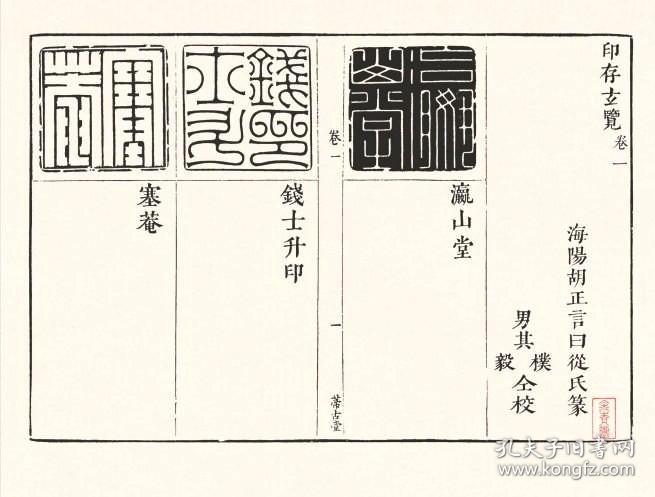 印存玄覽 卷一
海陽胡正言曰從氏篆
男其樸毅仝校
瀛山堂
卷一
一
蒂古堂
錢士升印
塞菴
孔夫子旧书网
www.kongfz.com